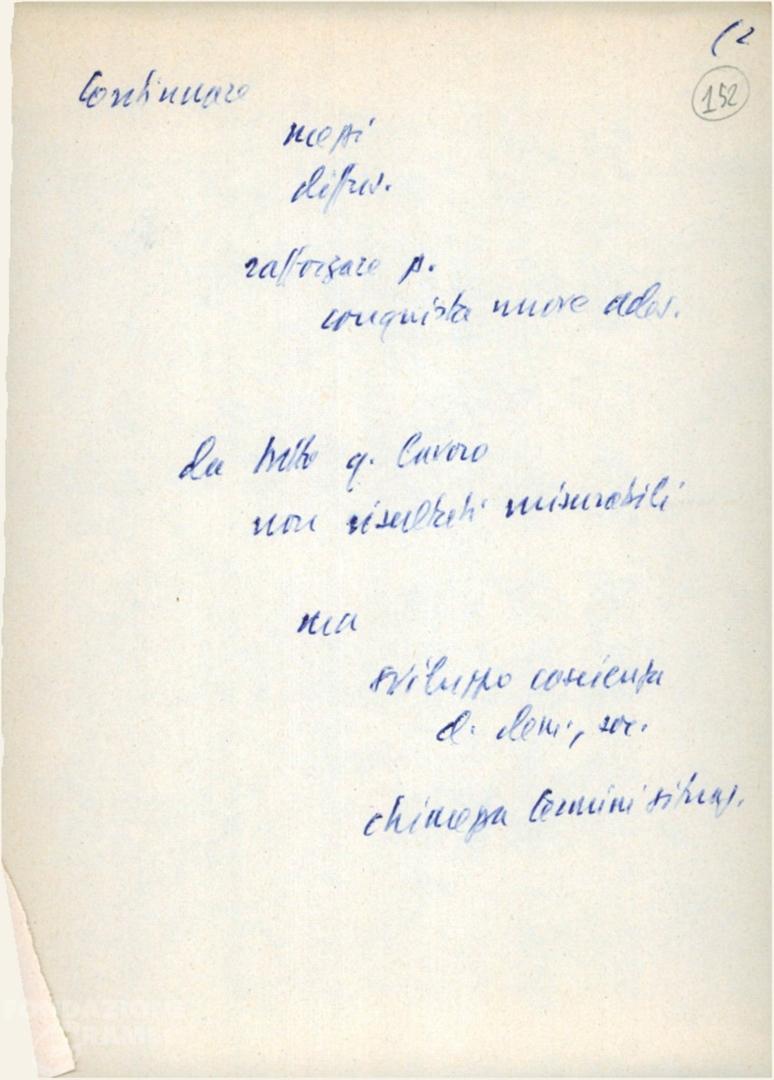 (2
152
Continuare
mesi
diffus.
rafforzare p.
conquista nuove ades.
da tutto q. lavoro
non risultati misurabili
ma
sviluppo coscienza
d. dem., soc.
chiarezza termini situaz.
FONDAZIONE
GRAMSCI